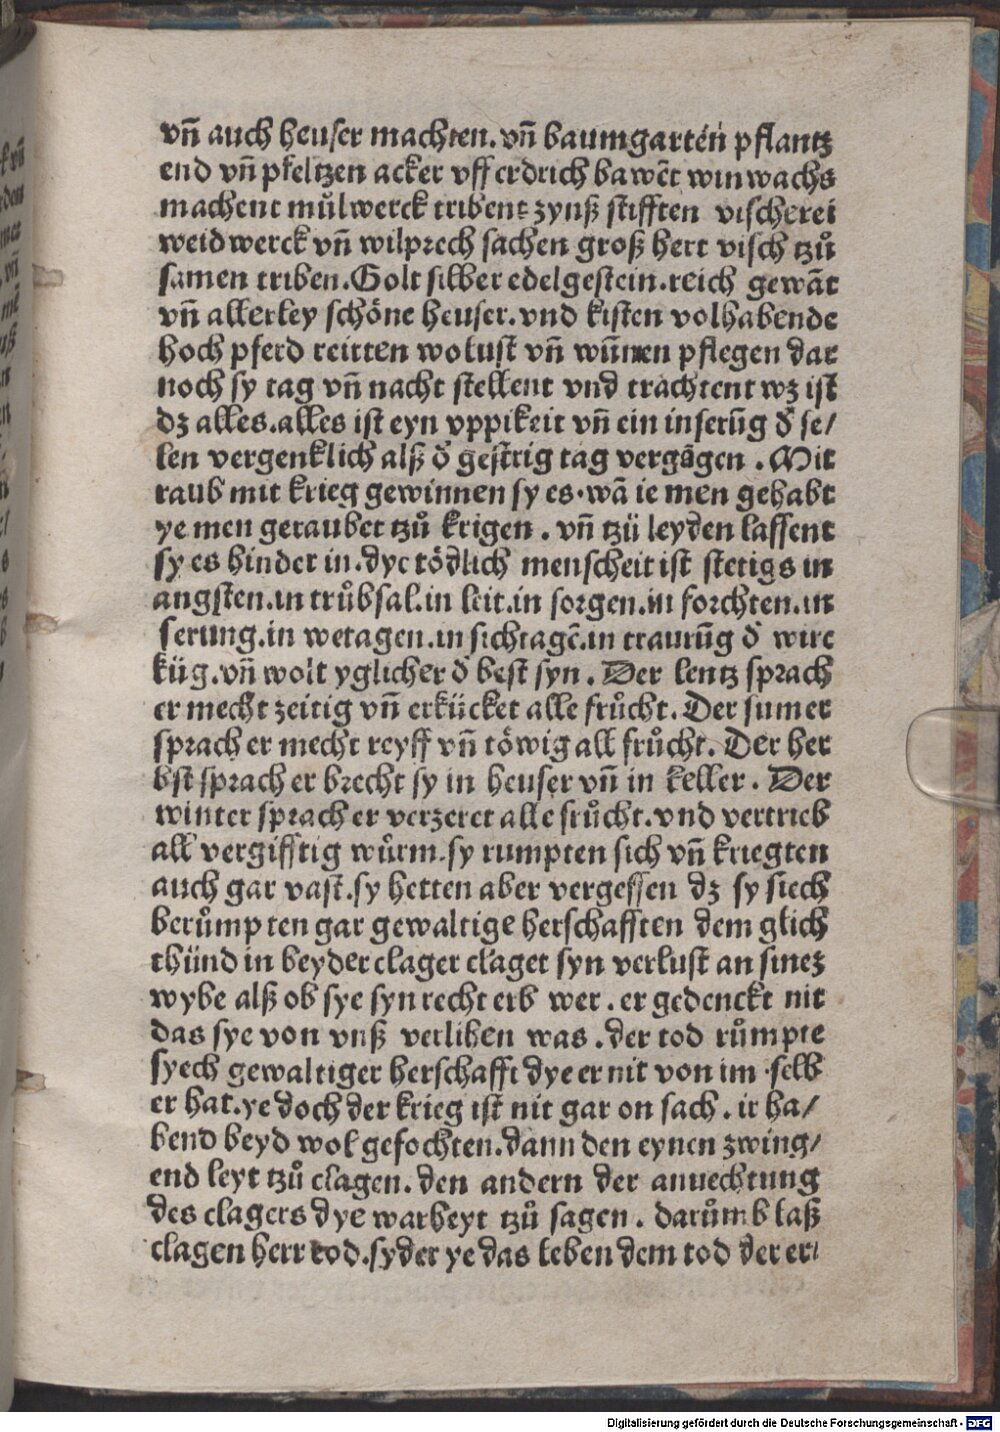 vñ auch heuser machten. vñ baumgarten pflantz
end vñ pfeltzen acker vff erdrich bawēt winwachs
machent můlwerck tribent zynß stifften vischerei
weidwerck vñ wilprech sachen groß hert visch tzů
samen triben. Golt silber edelgestein. reich gewāt
vñ allerley schöne heuser. vnd kisten volhabende
hoch pferd reitten wolust vñ wūnen pflegen dar
noch sy tag vñ nacht stellent vnd trachtent wz ist
dz alles. alles ist eyn vppikeit vñ ein inserūg d̕ se/
len vergenklich alß d̕ gestrig tag vergāgen. Mit
raub mit krieg gewinnen sy es. wā ie men gehabt
ye men geraubet tzů krigen. vñ tzü leyden lassent
sy es hinder in. dye tödlich menscheit ist stetigs in
angsten. in trůbsal. in leit. in sorgen. in forchten. in
serung. in wetagen. in sichtagē. in traurūg d̕ wirc
küg. vñ wolt yglicher d̕ best syn. Der lentz sprach
er mecht zeitig vñ erkücket alle frůcht. Der sumer
sprach er mecht reyff vñ töwig all frůcht. Der her
bst sprach er brecht sy in heuser vñ in keller. Der
winter sprach er verzeret alle frůcht. vnd vertrieb
all vergifftig wůrm. sy rumpten sich vñ kriegten
auch gar vast. sy hetten aber vergessen dz sy siech
berůmpten gar gewaltige herschafften dem glich
thünd in beyder clager claget syn verlust an sinez
wybe alß ob sye syn recht erb wer. er gedenckt nit
das sye von vnß verlihen was. der tod růmpte
syech gewaltiger herschafft dye er nit von im selb
er hat. ye doch der krieg ist nit gar on sach. ir ha/
bend beyd wol gefochten. dann den eynen zwing/
end leyt tzů clagen. den andern der anuechtung
des clagers dye warheyt tzů sagen. darůmb laß
clagen herr tod. syder ye das leben dem tod der er/
Digitalisierung gefördert durch die Deutsche Forschungsgemeinschaft - DFG